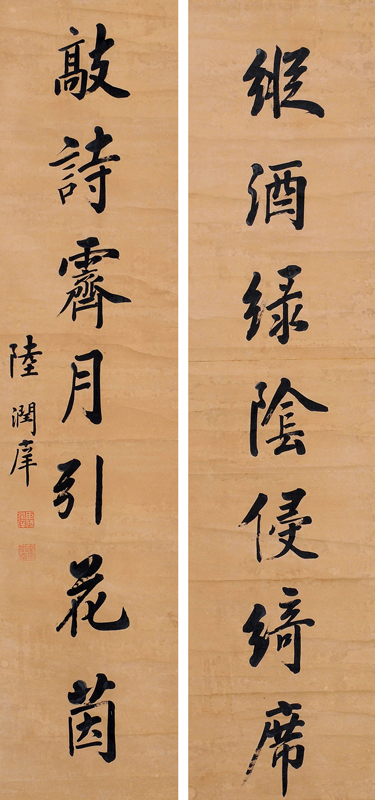 縱酒緑陰侵綺席
敲詩霽月引花茵
陸潤庠